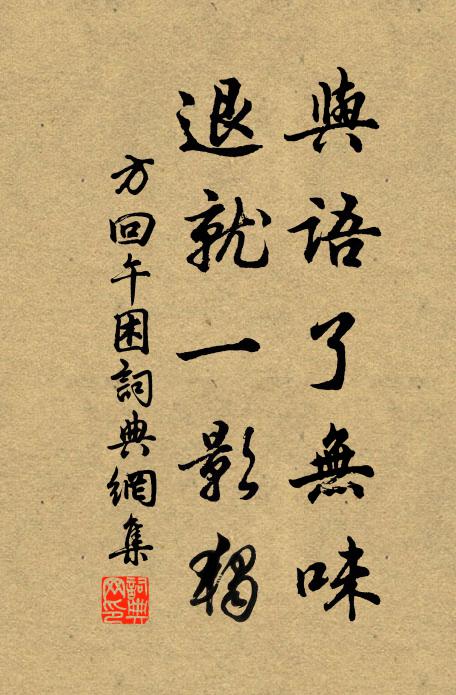 與語了無味
退就一影獨
方回午困詞典網集
詞典网印